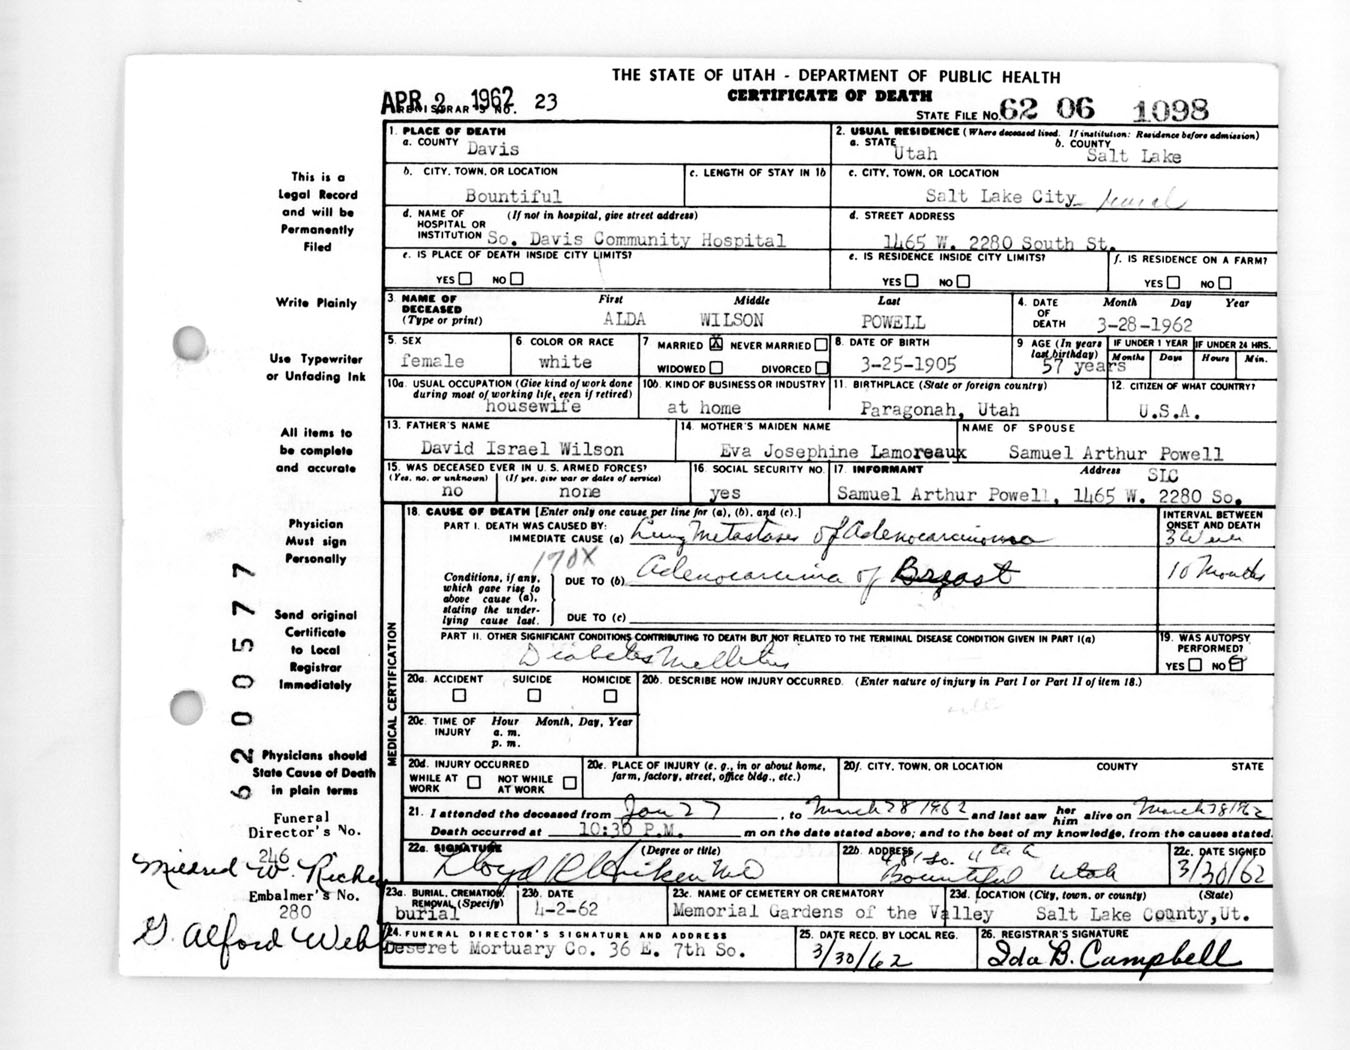 THE STATE OF UTAH - DEPARTMENT OF PUBLIC HEALTH
CERTIFICATE OF DEATH
APR 2 1962
REGISTRAR'S NO. 23
STATE FILE No. 62 06 1098
This is a
Legal Record
and will be
Permanently
Filed
Write Plainly
Use Typewriter
or Unfading Ink
All items to
be complete
and accurate
Physician
Must sign
Personally
Send original
Certificate
to Local
Registrar
Immediately
Physicians should
State Cause of Death
in plain terms
6200577
Funeral
Director's No.
246
Mildred W.
Embalmer's No.
280
G. Alford Webb
1. PLACE OF DEATH
a. COUNTY Davis
2. USUAL RESIDENCE (Where deceased lived. If institution: Residence before admission)
a. STATE Utah b. COUNTY Salt Lake
b. CITY, TOWN, OR LOCATION Bountiful
c. LENGTH OF STAY IN 1b
c. CITY, TOWN, OR LOCATION Salt Lake City rural
d. NAME OF HOSPITAL OR INSTITUTION (If not in hospital, give street address) So. Davis Community Hospital
d. STREET ADDRESS 1465 W. 2280 South St.
e. IS PLACE OF DEATH INSIDE CITY LIMITS?
YES NO
e. IS RESIDENCE INSIDE CITY LIMITS?
YES NO
f. IS RESIDENCE ON A FARM?
YES NO
3. NAME OF DECEASED (Type or print)
First Middle Last
ALDA WILSON POWELL
4. DATE OF DEATH Month Day Year
3-28-1962
5. SEX female
6 COLOR OR RACE white
7 MARRIED X NEVER MARRIED
WIDOWED DIVORCED
8. DATE OF BIRTH 3-25-1905
9 AGE (In years last birthday) 57 years
IF UNDER 1 YEAR Months Days
IF UNDER 24 HRS. Hours Min.
10a. USUAL OCCUPATION (Give kind of work done during most of working life, even if retired) housewife
10b. KIND OF BUSINESS OR INDUSTRY at home
11. BIRTHPLACE (State or foreign country) Paragonah, Utah
12. CITIZEN OF WHAT COUNTRY? U.S.A.
13. FATHER'S NAME David Israel Wilson
14. MOTHER'S MAIDEN NAME Eva Josephine Lamoreaux
NAME OF SPOUSE Samuel Arthur Powell
15. WAS DECEASED EVER IN U. S. ARMED FORCES?
(Yes, no, or unknown) no (If yes, give war or dates of service) none
16. SOCIAL SECURITY NO. yes
17. INFORMANT Address SLC
Samuel Arthur Powell, 1465 W. 2280 So.
MEDICAL CERTIFICATION
18. CAUSE OF DEATH [Enter only one cause per line for (a), (b), and (c).]
INTERVAL BETWEEN ONSET AND DEATH
PART I. DEATH WAS CAUSED BY:
IMMEDIATE CAUSE (a) Lung Metastases of Adenocarcinoma
170X
Conditions, if any, which gave rise to above cause (a), stating the underlying cause last.
DUE TO (b) Adenocarcinoma of Breast 10 Months
DUE TO (c)
PART II. OTHER SIGNIFICANT CONDITIONS CONTRIBUTING TO DEATH BUT NOT RELATED TO THE TERMINAL DISEASE CONDITION GIVEN IN PART I(a)
Diabetes Mellitus
19. WAS AUTOPSY PERFORMED?
YES NO
20a. ACCIDENT SUICIDE HOMICIDE
20b. DESCRIBE HOW INJURY OCCURRED. (Enter nature of injury in Part I or Part II of item 18.)
20c. TIME OF INJURY Hour Month, Day, Year
a. m.
p. m.
20d. INJURY OCCURRED
WHILE AT WORK NOT WHILE AT WORK
20e. PLACE OF INJURY (e. g., in or about home, farm, factory, street, office bldg., etc.)
20f. CITY, TOWN, OR LOCATION COUNTY STATE
21. I attended the deceased from Jan 27, to March 28 1962 and last saw her him alive on March 28 1962
Death occurred at 10:30 P.M. m on the date stated above; and to the best of my knowledge, from the causes stated.
22a. SIGNATURE (Degree or title)
Lloyd MD
22b. ADDRESS
Bountiful Utah
22c. DATE SIGNED 3/30/62
23a. BURIAL, CREMATION REMOVAL (Specify) burial
23b. DATE 4-2-62
23c. NAME OF CEMETERY OR CREMATORY Memorial Gardens of the Valley
23d. LOCATION (City, town, or county) (State) Salt Lake County, Ut.
24. FUNERAL DIRECTOR'S SIGNATURE AND ADDRESS
Deseret Mortuary Co. 36 E. 7th So.
25. DATE RECD. BY LOCAL REG. 3/30/62
26. REGISTRAR'S SIGNATURE Ida B. Campbell